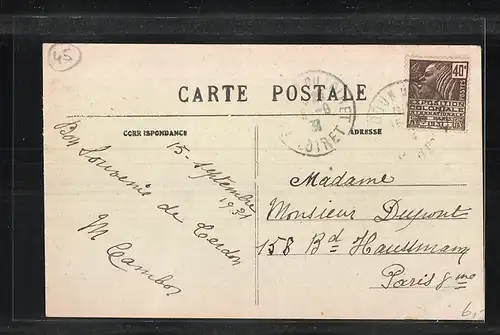 45
40c
POSTES
EXPOSITION
COLONIALE
INTERNATIONALE
PARIS 1931
CARTE POSTALE
CORRESPONDANCE
ADRESSE
LOIRET
15 - Septembre
1931
Bon Souvenir de Cerdon
M Cambos
Madame
Monsieur Dupont
158 Bd Haussmann
Paris 8me
6,-